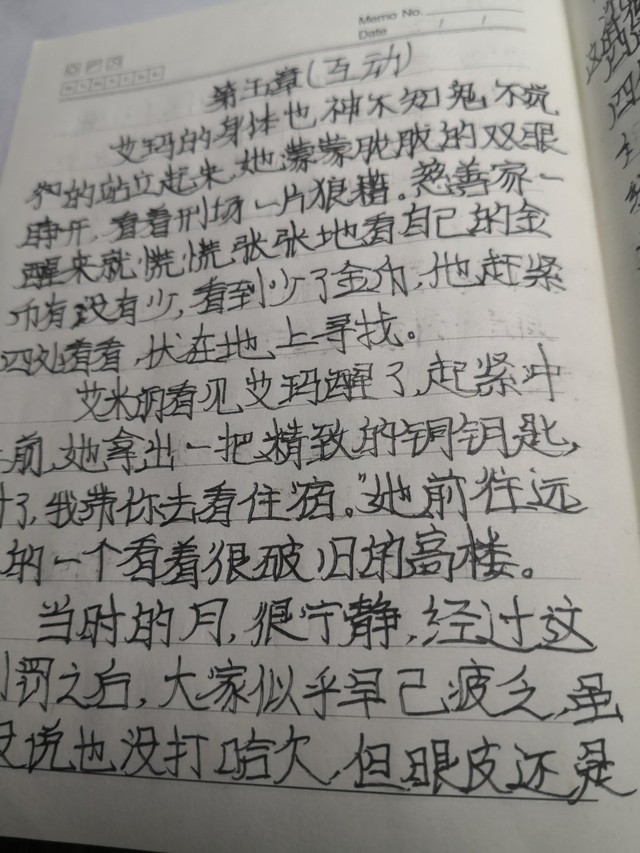 Memo No.
Date / /
第五章(互动)
艾玛的身体也神不知鬼不觉
的站立起来,她蒙蒙胧胧的双眼
睁开,看着刑场一片狼藉。慈善家一
醒来就慌慌张张地看自己的金
币有没有少,看到少了金币,他赶紧
四处看看,伏在地上寻找。
艾米丽看见艾玛醒了,赶紧冲
前,她拿出一把精致的钥匙,
了,我带你去看住宿。"她前往远
的一个看着很破旧的高楼。
当时的月,很宁静,经过这
罚之后,大家似乎早已疲乏,虽
没说也没打哈欠,但眼皮还是